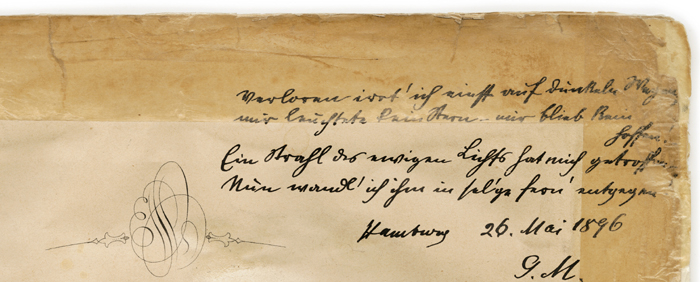 Verloren irrt' ich einst auf dunkeln Wegen
mir leuchtete kein Stern – mir blieb kein
Hoffen
Ein Strahl des ewigen Lichts hat mich getroffen
Nun wandl' ich ihm in sel'ge fern' entgegen
Hamburg 26. Mai 1896
G. M.